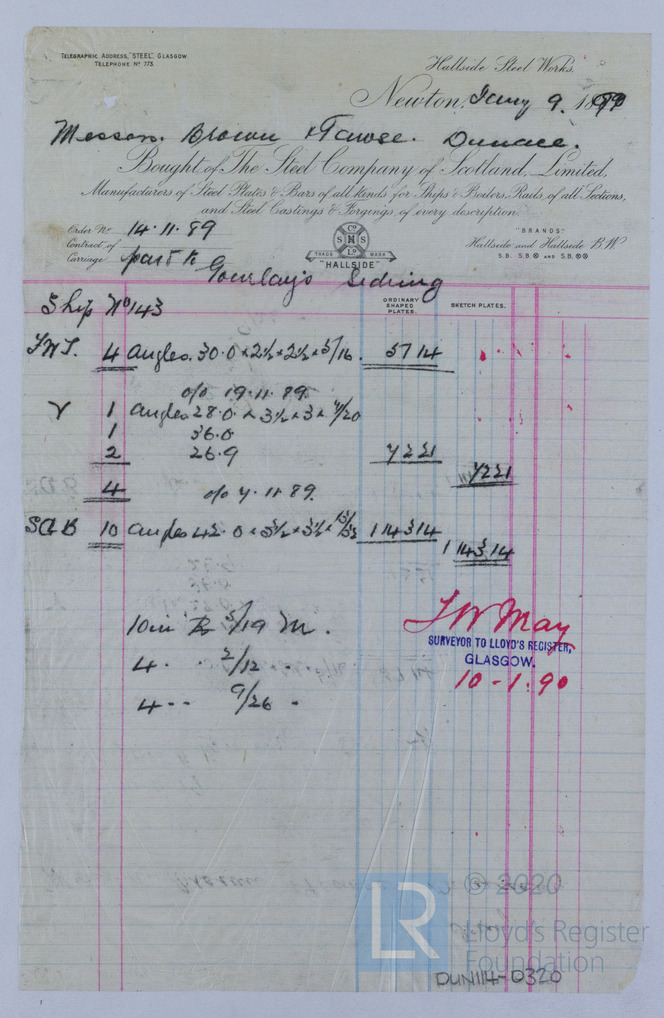 TELEGRAPHIC ADDRESS, "STEEL", GLASGOW
TELEPHONE Nº 773.
Hallside Steel Works.
Newton, Jany 9. 18
Messrs. Brown & Tawse. Dundee.
Bought of The Steel Company of Scotland, Limited,
Manufacturers of Steel Plates & Bars of all kinds for Ships & Boilers, Rails of all Sections,
and Steel Castings & Forgings of every description.
Order No 14.11.89
Contract of
Carriage part to
Gourlay's Siding
S Co S H Lo
TRADE MARK
"HALLSIDE"
"BRANDS"
Hallside and Hallside B.W
S.B. S.B AND S.B.
ORDINARY SHAPED PLATES.
SKETCH PLATES.
Ship Nº 143
4 angles 30.0 x 2½ x 2½ x 5/16 5 7 14
o/o 19.11.89
1 angles 28.0 x 3½ x 3 x /20
1 36.0
2 26.9
4 o/o 4.11.89
10 angles 42.0 x 3½ x 3½ x 1 14 3 14
1 14 3 14
10 in 5/19 M.
4 . 2/12 . .
4 . . 9/26 .
J W May
SURVEYOR TO LLOYD'S REGISTER,
GLASGOW.
10-1.90
LR
© 2020
Lloyd's Register
Foundation
DUN114-0320